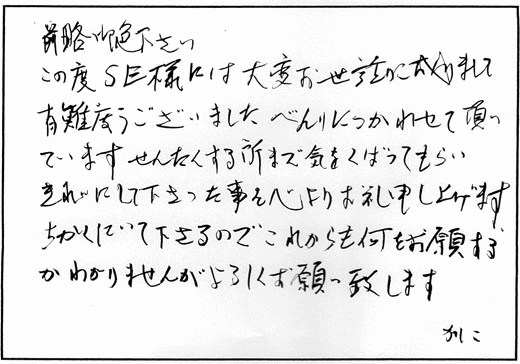 前略御免下さい
この度SE様には大変お世話になりまして
有難度うございました べんりにつかわせて頂っ
ています せんたくする所まで気をくばってもらい
きれいにして下さった事を心よりお礼申し上げます
ちかくにいて下さるのでこれからも何をお願する
かわかりませんがよろしくお願い致します
かしこ